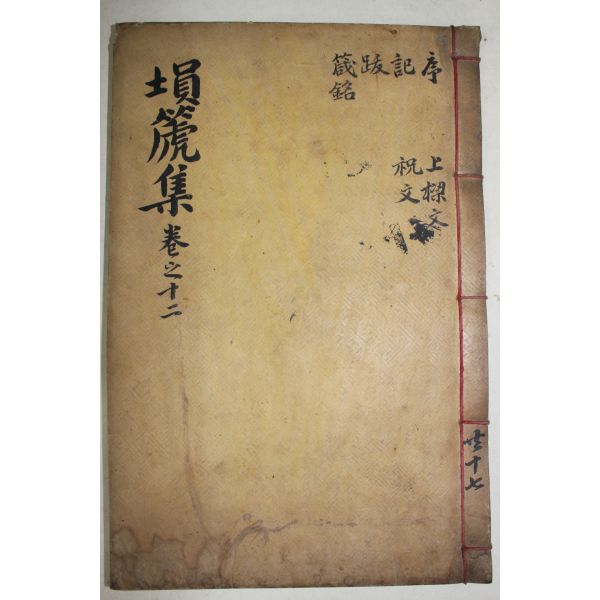 序
記
跋
箴銘
上樑文
祝文
塤篪集 卷之十二
共十七